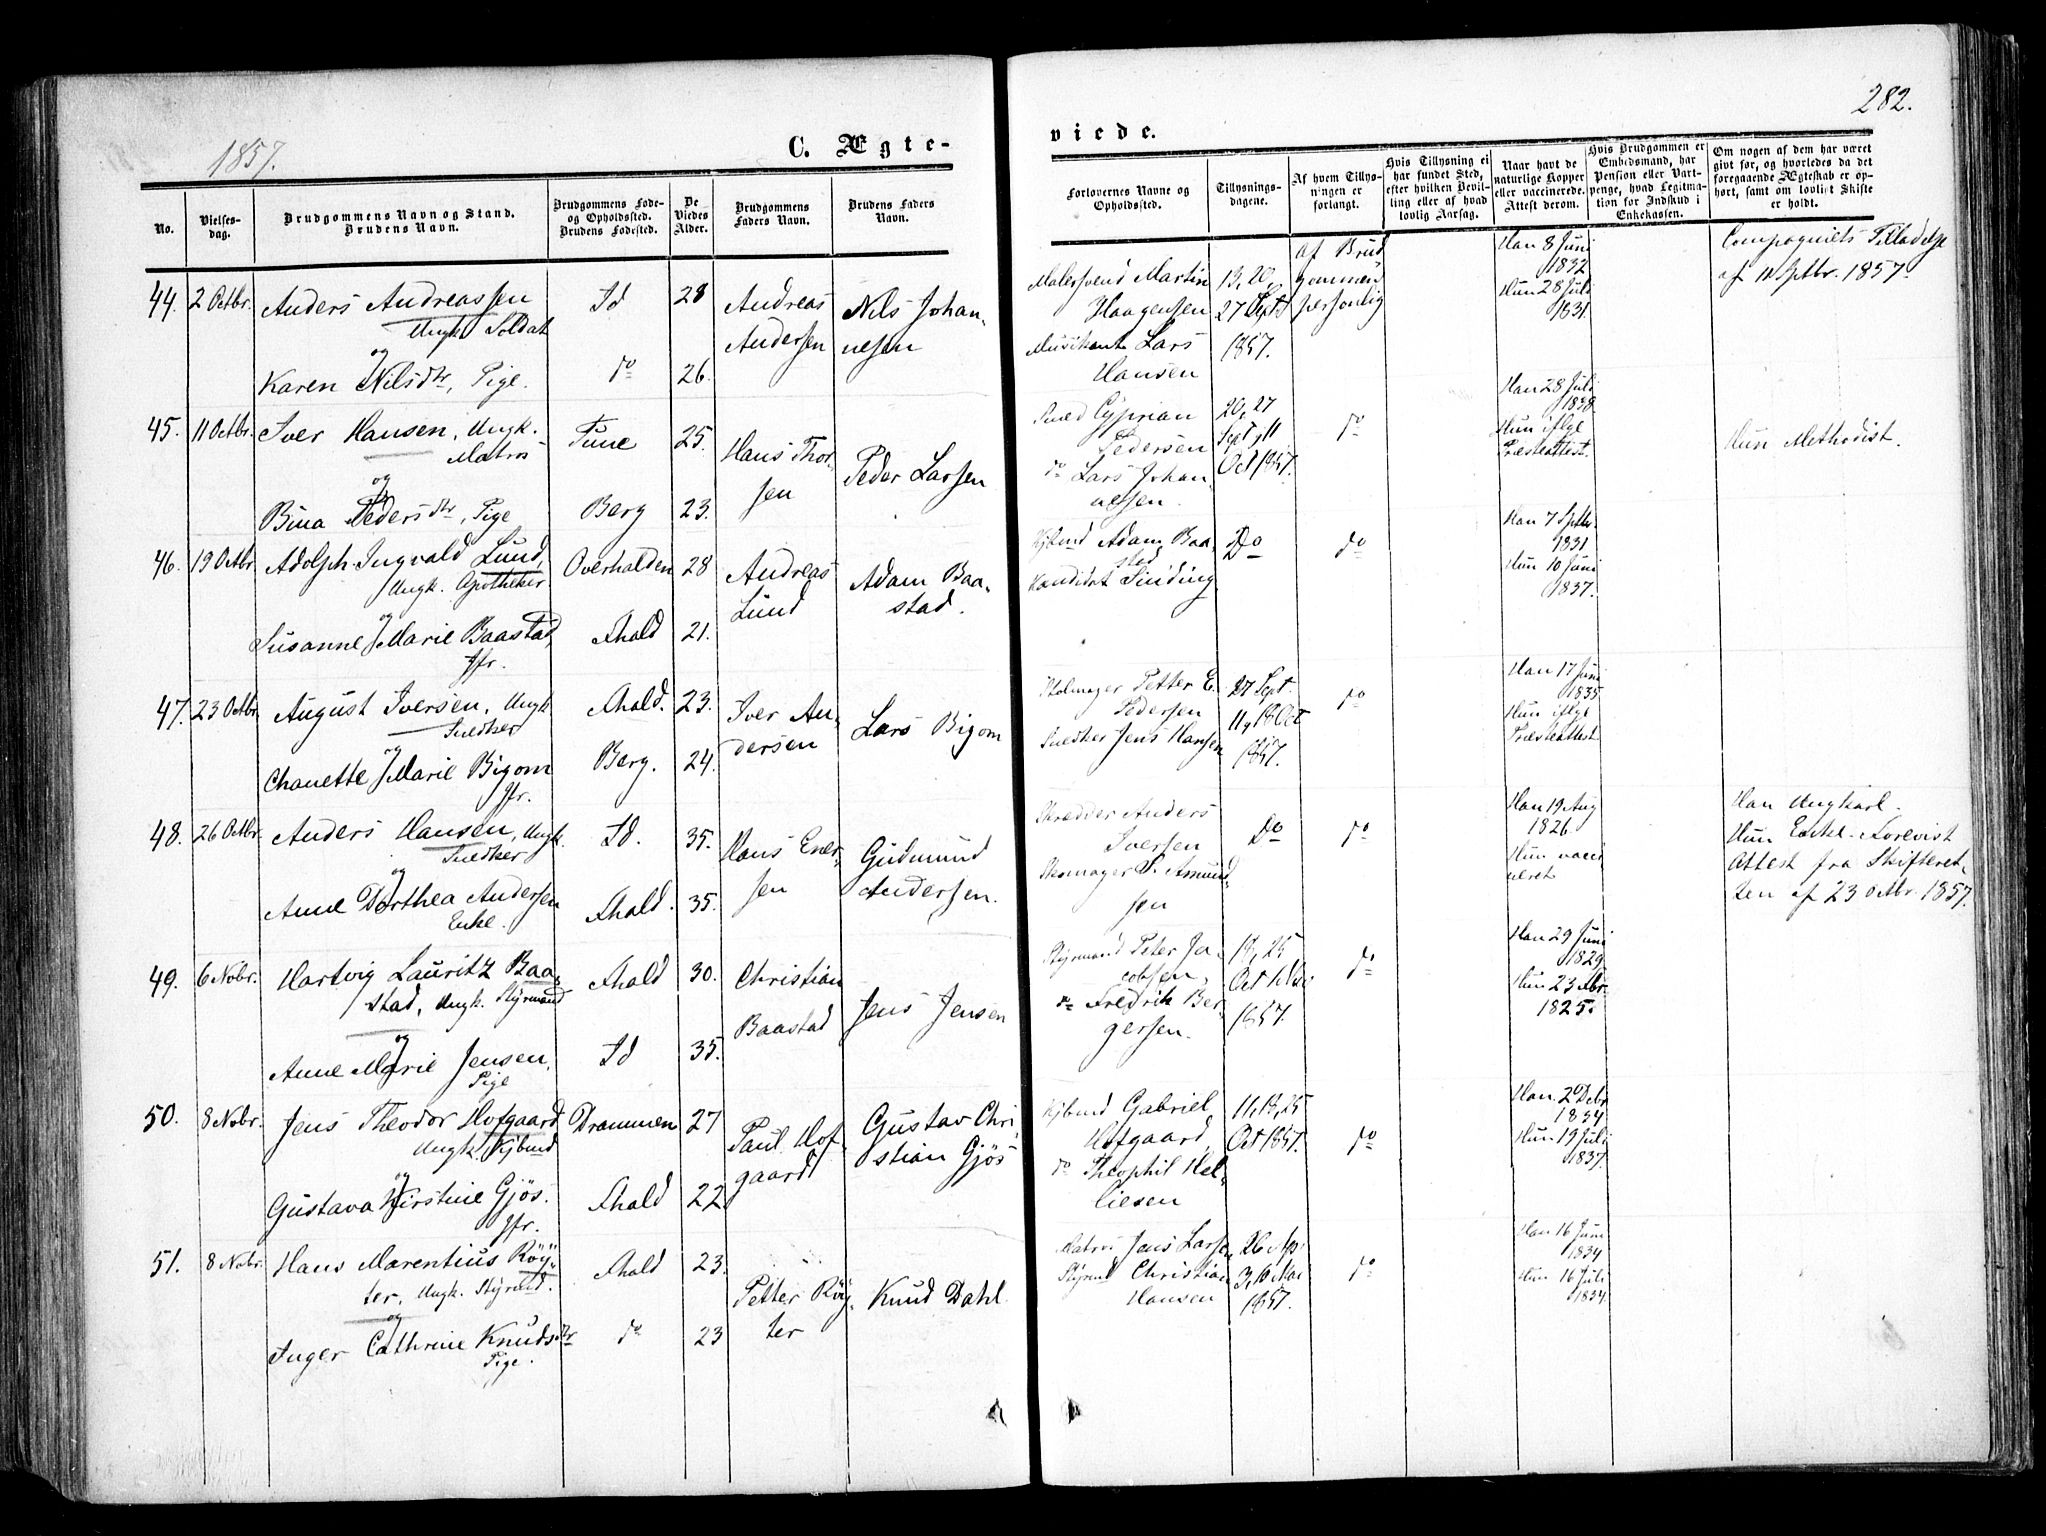 1857.
C. Ægte-
No.
Vielses-
dag.
Brudgommens Navn og Stand.
Brudens Navn.
Brudgommens Føde-
og Opholdssted.
Brudens Fødested.
De
Viedes
Alder.
Brudgommens
Faders Navn.
Brudens Faders
Navn.
44. 2 Octbr. Anders Andreassen Id 28 Andreas Nils Johan-
Ungk. Soldat Andersen nesen
og
Karen Nilsdtr, Pige. do 26.
45. 11 Octbr. Iver Hansen, Ungk. Tune 25. Hans Thor- Peder Larsen
Matros sen
og
Bina Pedersdtr, Pige Berg 23.
46. 19 Octbr. Adolph Ingvald Lund, Overhalden 28 Andreas Adam Baa-
Ungk. Apotheker Lund stad.
og
Susanne Marie Baastad, Fhald 21.
Jfr.
47. 23 Octbr. August Iversen, Ungk. Fhald. 23. Iver An- Lars Bigom
Snedker dersen
og
Chanette Marie Bigom Berg. 24.
Jfr.
48. 26 Octbr. Anders Hansen, Ungk. Id. 35. Hans Ener- Gudmund
Snedker sen Andersen.
og
Anne Dorthea Andersen Fhald. 35.
Enke.
49. 6 Novbr. Hartvig Lauritz Baa- Fhald 30. Christian Jens Jensen
stad, Ungk. Styrmand Baastad
og
Anne Marie Jensen, Id 35.
Pige
50. 8 Novbr. Jens Theodor Hofgaard Drammen 27 Paul Hof- Gustav Chri-
Ungk. Kjbmd gaard stian Gjøs
og
Gustava Kirstine Gjøs. Fhald 22
Jfr.
51. 8 Novbr. Hans Marentius Røy- Fhald 23. Petter Røy- Knud Dahl.
ter, Ungk. Styrmd. ter
og
Inger Cathrine Knudsdtr do 23
Pige.
viede.
282.
Forlovernes Navne og
Opholdssted.
Tillysnings-
dagene.
Af hvem Tillys-
ningen er
forlangt.
Hvis Tillysning ei
har fundet Sted,
efter hvilken Bevil-
ling eller af hvad
lovlig Aarsag.
Naar havt de
naturlige Kopper
eller vaccinerede.
Attest derom.
Hvis Brudgommen er
Embedsmand, har
Pension eller Vart-
penge, hvad Legitma-
tion for Indskud i
Enkekassen.
Om nogen af dem har været
givt før, og hvorledes da det
foregaaende Ægteskab er op-
hørt, samt om lovligt Skifte
er holdt.
Malersvend Martin 13, 20, af Brud- Han 8 Juni Compagniets Tilladelse
Haagensen 27 Sept gommen 1832 af 11 Septbr. 1857.
Musikant Lars 1857. personlig Hun 28 Juli
Hansen 1831.
Cyprian 20, 27 do Han 28 Juli Hun Methodist.
Pedersen Sept, 11 1838
do Lars Johan- Oct 1857. Hun iflge
nessen. Præsteattest.
Kjbmd Adam Baa- Do do Han 7 Septbr.
stad 1831
Kandidat Sinding Hun 10 Juni
1837.
Petter E. 27 Sept. do Han 17 Juni
Pedersen 11, 18 Oct 1835
Snedker Jens Hansen 1857. Hun iflge
Præsteattest
Skredder Anders Do do Han 19 Aug Han Ungkarl.
Iversen 1826 Hun Enke. Forevist
Skomager S. Amund- Hun vacci- Attest fra Skifteret-
sen neret ten af 23 Octbr. 1857.
Styrmand Peter Ja- 18, 25 do Han 29 Juni
cobsen, Oct 1 Nov 1829
do Fredrik Ber- 1857. Hun 23
gersen. 1825.
Kjbmd Gabriel 11, 18, 25 do Han 2 Debr
Hofgaard, Oct 1857. 1834
do Theophil Hel- Hun 19 Juli
liesen 1837.
Matros Jens Larsen 26 Ap. do Han 16 Juni
Styrmd Christian 3, 10 Mai 1834
Hansen 1857. Hun 16 Juli
1834.